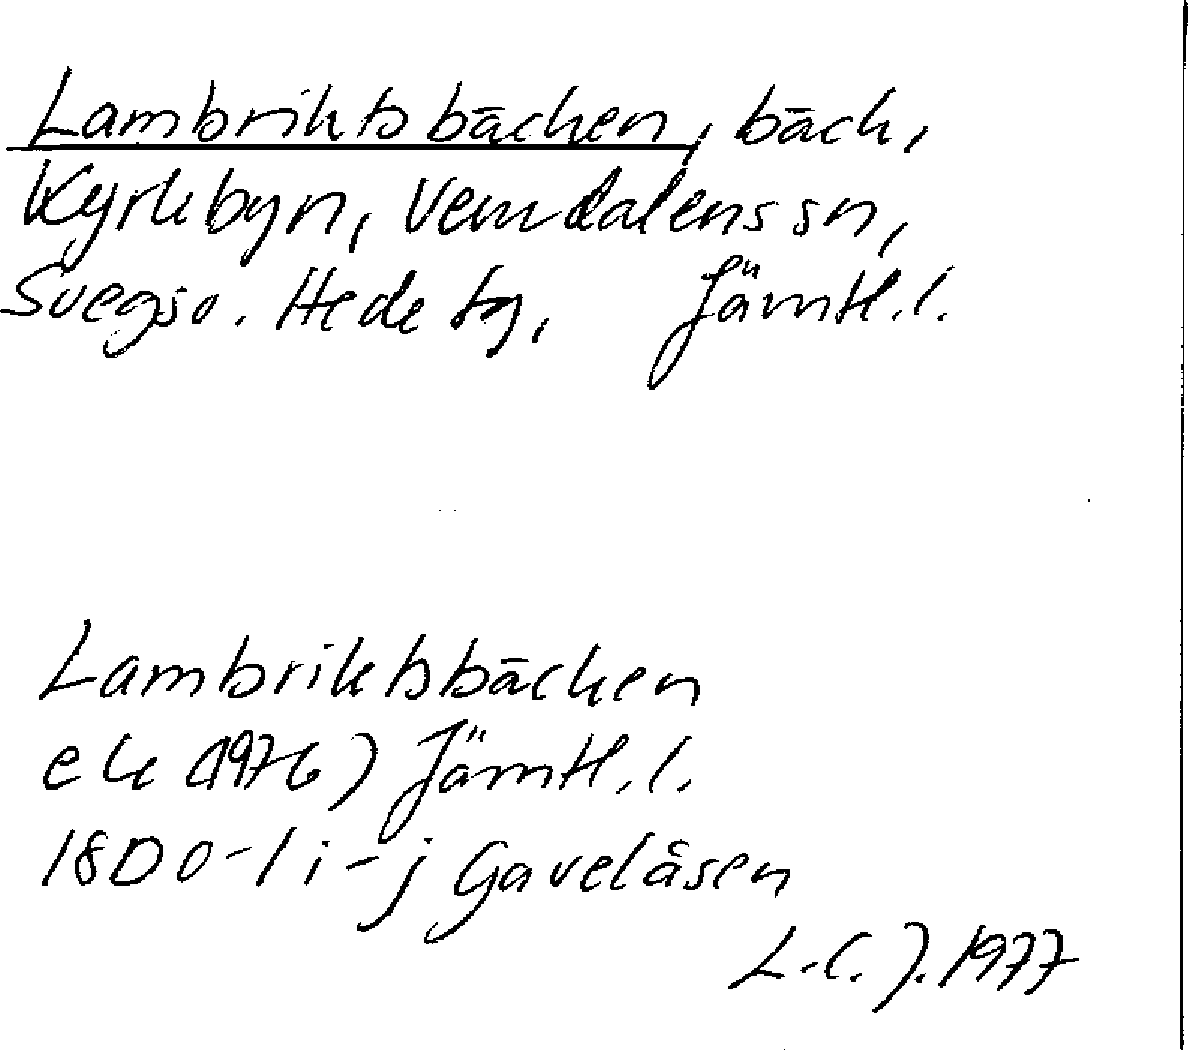 Lambriktsbäcken, bäck,
Kyrkbyn, Vemdalens sn,
Svegso. Hede tg, Jämtl.l.
Lambriktsbäcken
ek (1976) Jämtl.l.
18D 0-1 i-j Gavelåsen
L.C.J. 1977